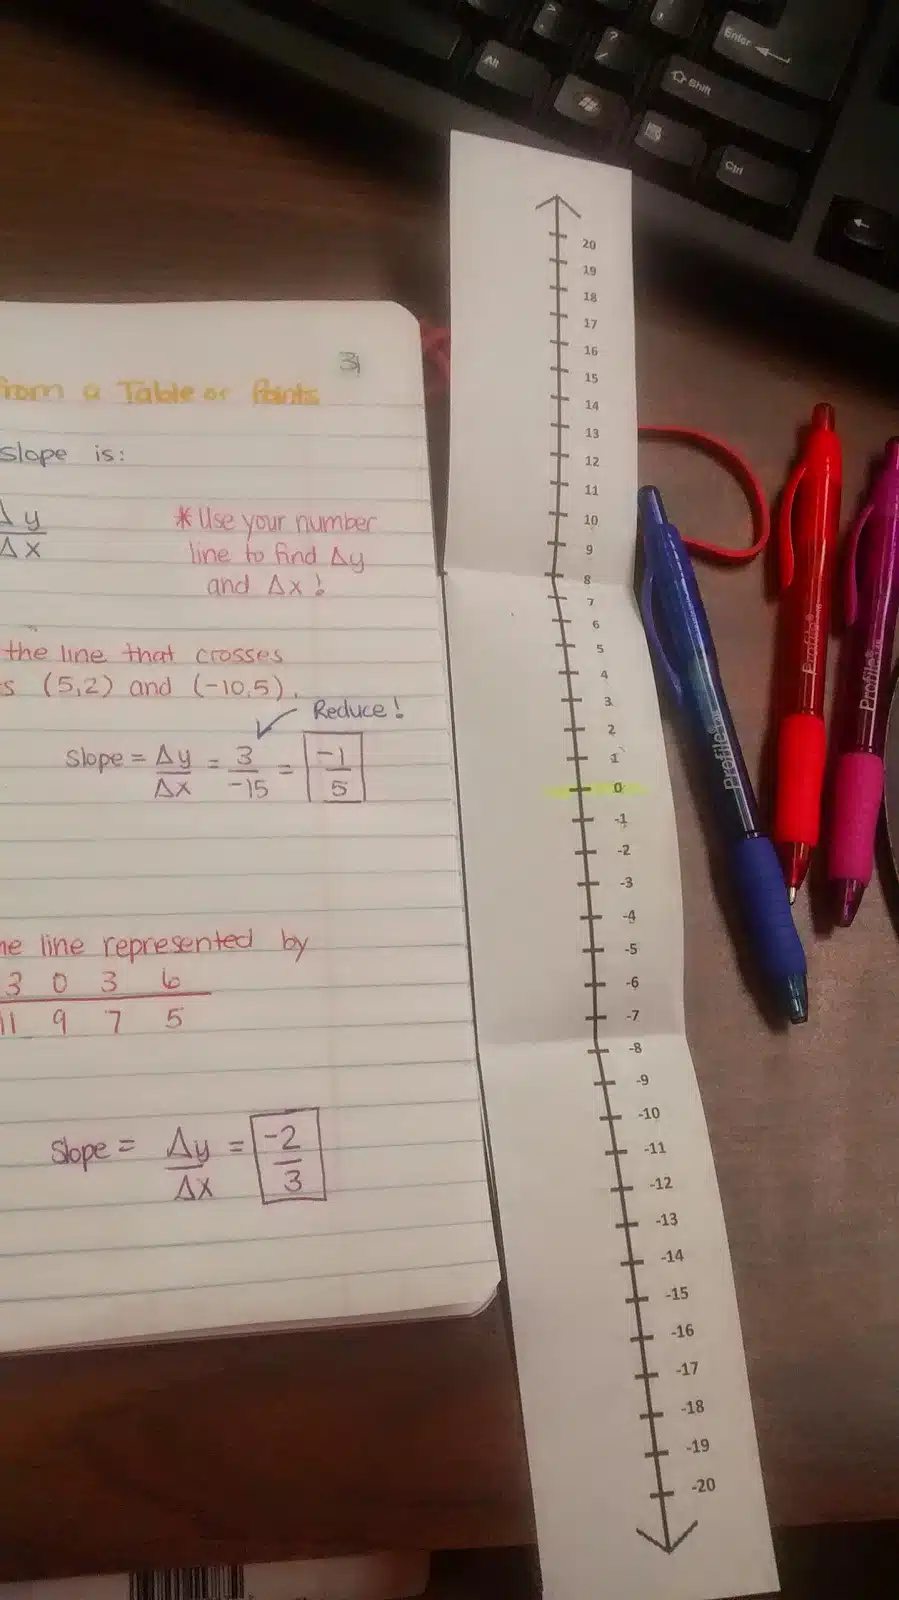 Enter
Alt
Shift
Ctrl
31
from a Table or Points
Slope is:
Δy
ΔX
* Use your number
line to find Δy
and Δx!
the line that crosses
(5,2) and (-10,5).
Reduce!
Slope = Δy = 3 = -1
ΔX -15 5
line represented by
3 0 3 6
11 9 7 5
Slope = Δy = -2
ΔX 3
20
19
18
17
16
15
14
13
12
11
10
9
8
7
6
5
4
3
2
1
0
-1
-2
-3
-4
-5
-6
-7
-8
-9
-10
-11
-12
-13
-14
-15
-16
-17
-18
-19
-20
Profile
Profile
Profile